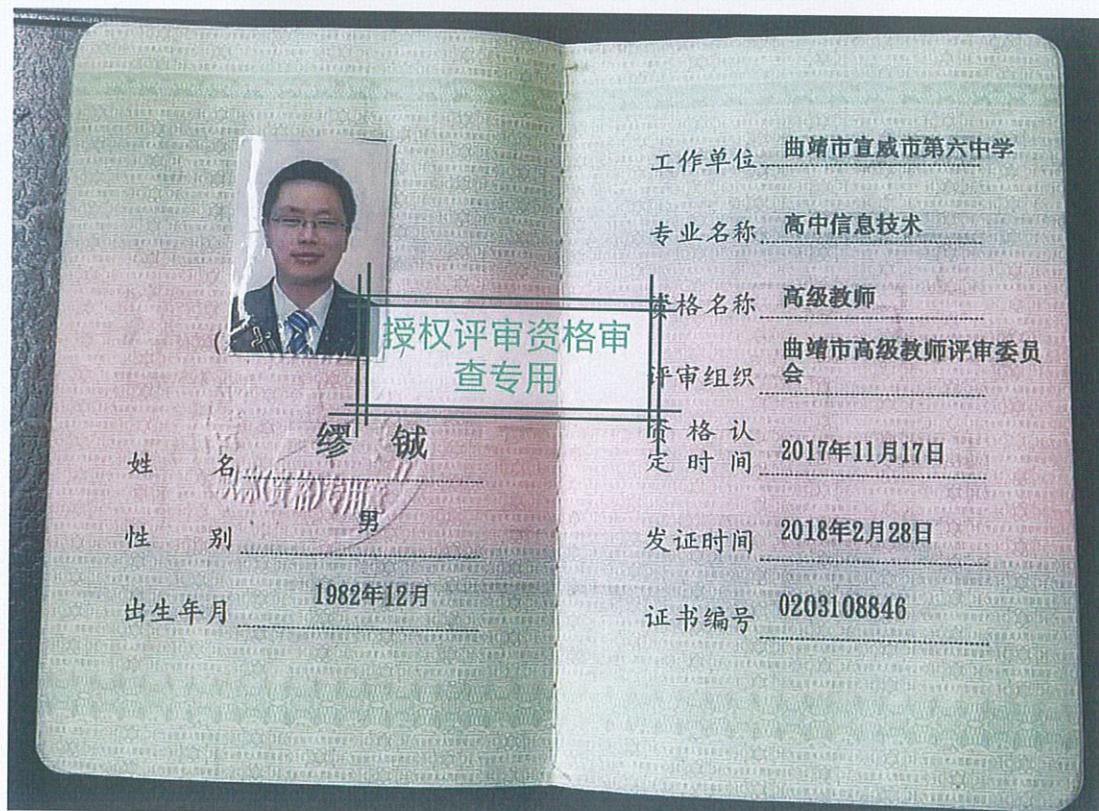 姓名 缪铖
性别 男
出生年月 1982年12月
授权评审资格审
查专用
工作单位 曲靖市宣威市第六中学
专业名称 高中信息技术
资格名称 高级教师
评审组织 曲靖市高级教师评审委员
会
资格认
定时间 2017年11月17日
发证时间 2018年2月28日
证书编号 0203108846